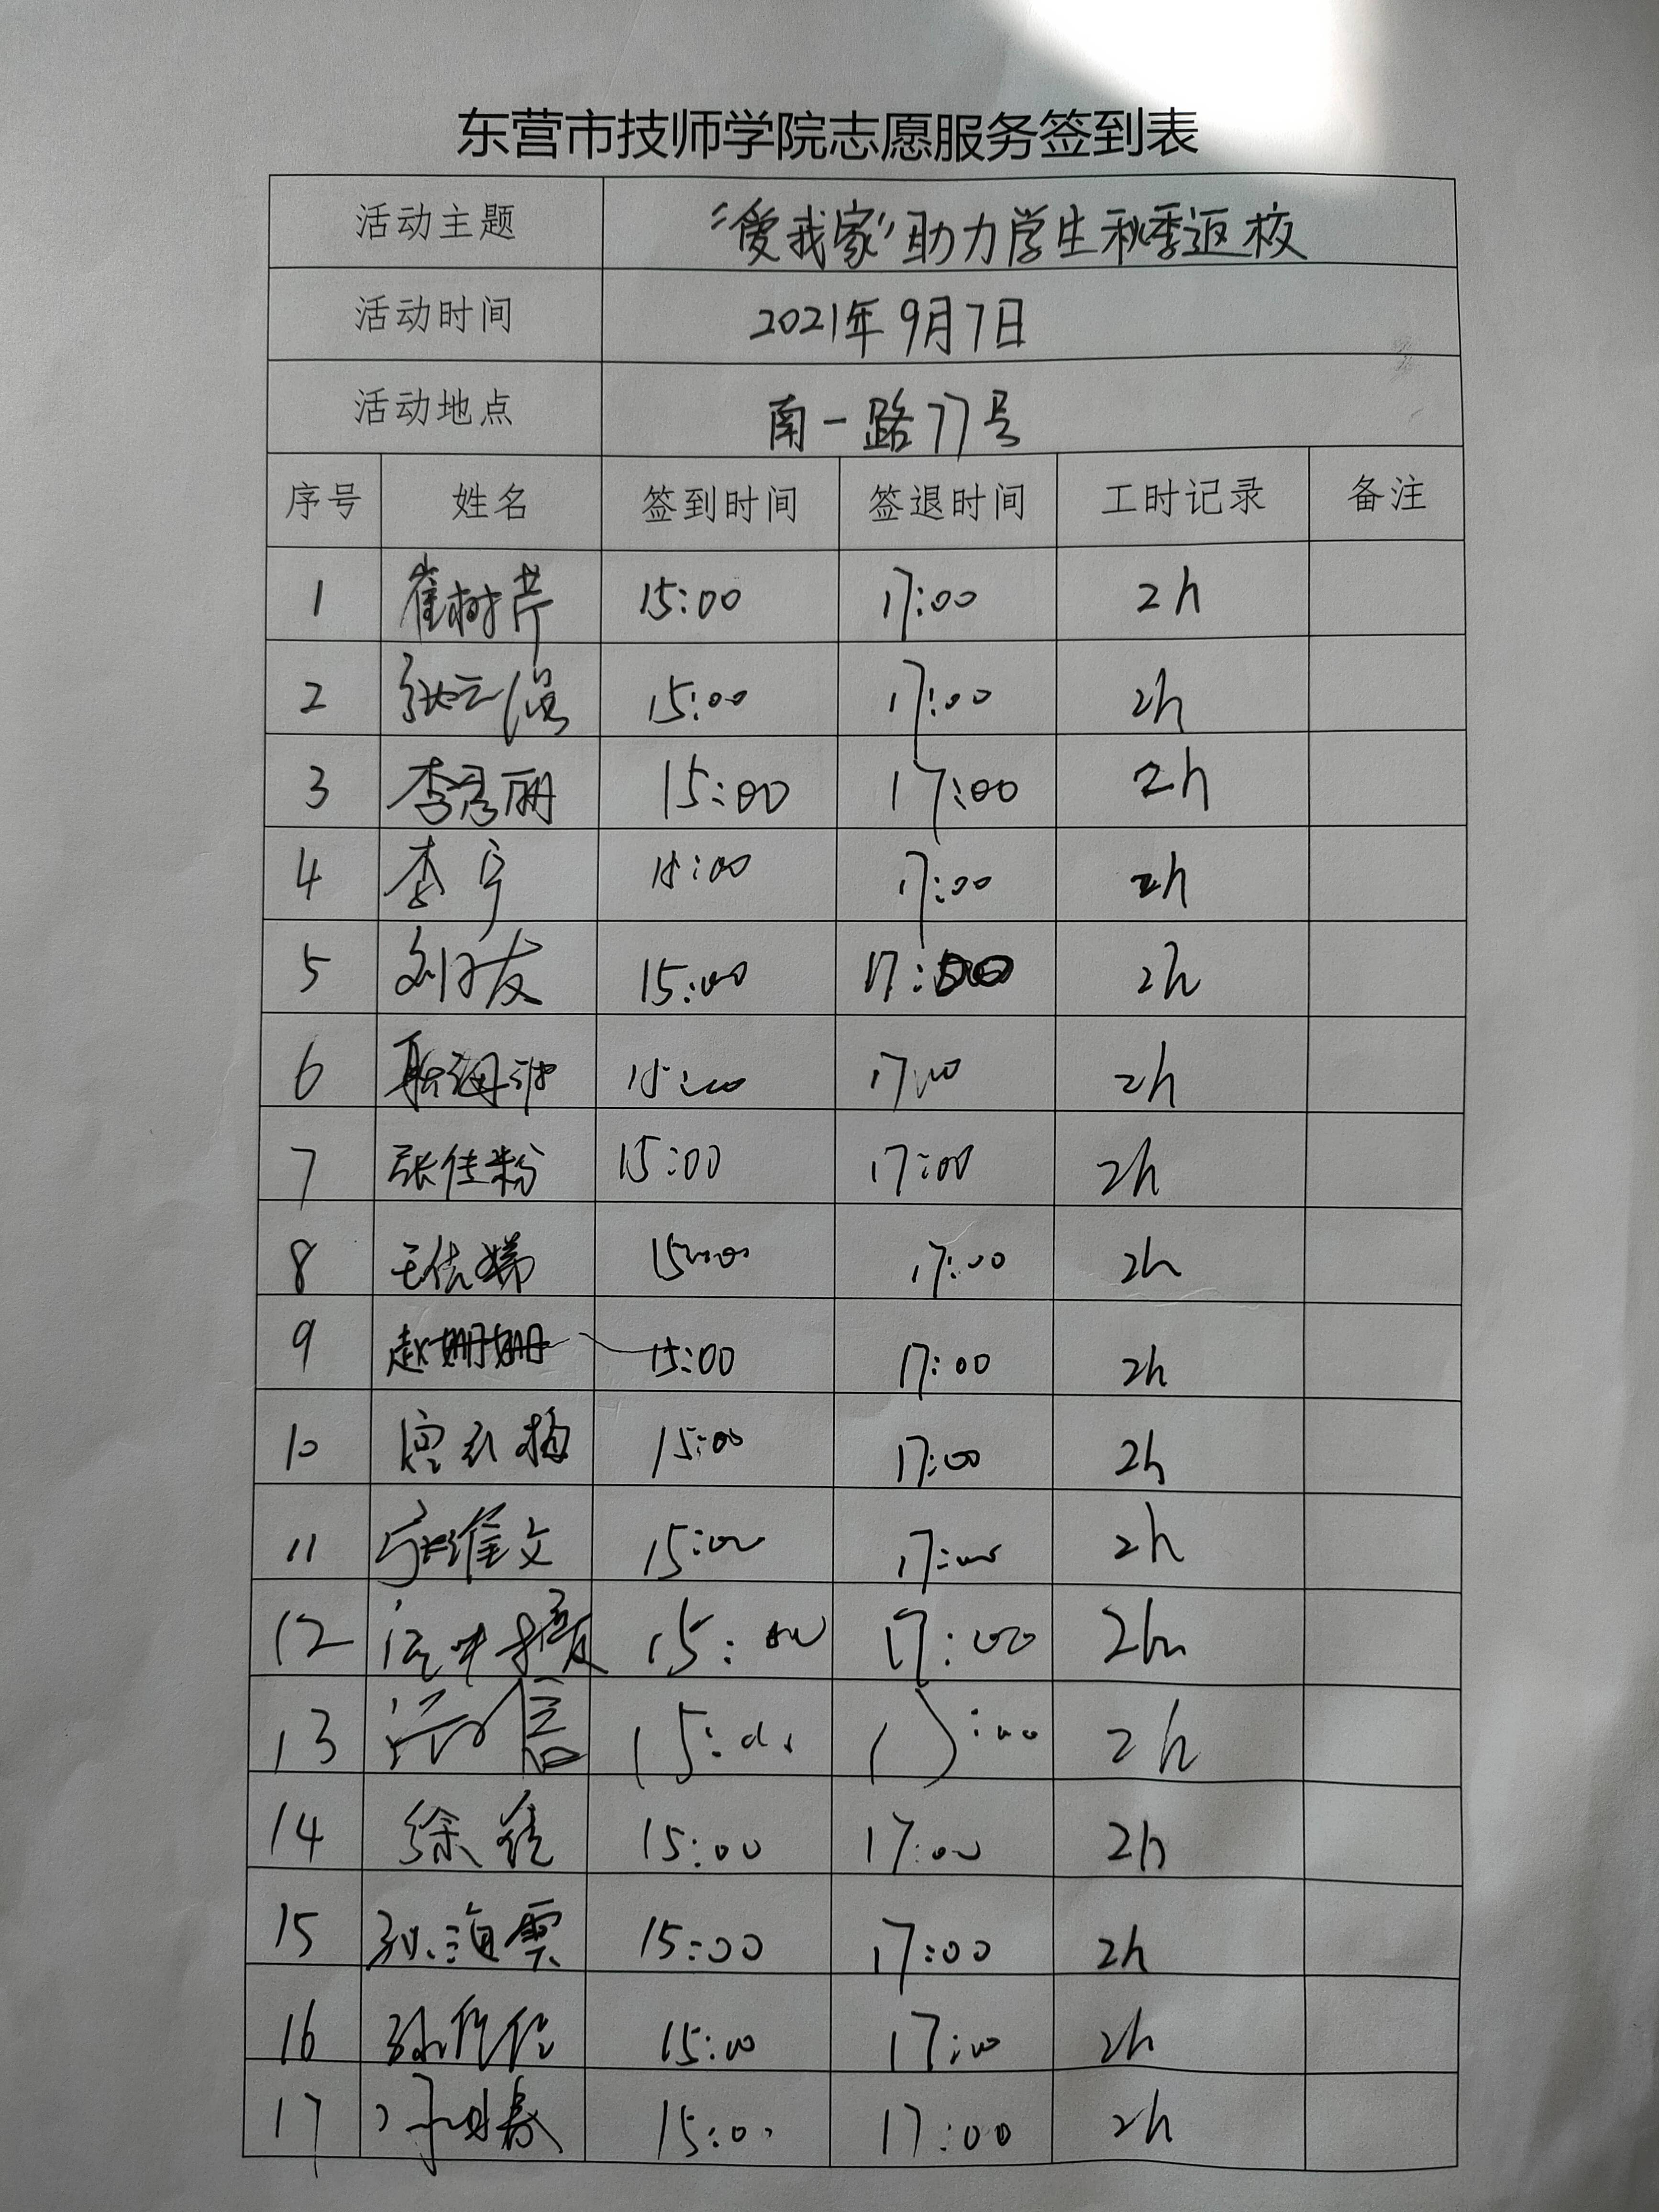 东营市技师学院志愿服务签到表
活动主题 “爱我家”助力学生秋季返校
活动时间 2021年9月7日
活动地点 南一路77号
序号 姓名 签到时间 签退时间 工时记录 备注
1 崔树芹 15:00 17:00 2h
2 张云强 15:00 17:00 2h
3 李秀丽 15:00 17:00 2h
4 李宁 15:00 17:00 2h
5 15:00 17:00 2h
6 15:00 17:00 2h
7 张佳粉 15:00 17:00 2h
8 15:00 17:00 2h
9 赵姗姗 15:00 17:00 2h
10 15:00 17:00 2h
11 张维文 15:00 17:00 2h
12 15:00 17:00 2h
13 15:00 17:00 2h
14 15:00 17:00 2h
15 孙海云 15:00 17:00 2h
16 15:00 17:00 2h
17 15:00 17:00 2h